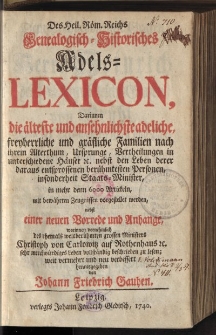 Des Heil. Röm. Reichs
Genealogisch-Historisches
Adels-
LEXICON,
Darinnen
die älteste und ansehnlichste adeliche,
freyherrliche und gräfliche Familien nach
ihrem Alterthum, Ursprunge, Vertheilungen in
unterschiedene Häuser ec. nebst den Leben derer
daraus entsprossenen berühmtesten Personen,
insonderheit Staats-Minister,
in mehr denn 6000 Articeln,
mit bewährten Zeugnissen vorgestellet werden,
nebst
einer neuen Vorrede und Anhange,
worinnen vornehmlich
des ehemals weltberühmten grossen Ministers
Christoph von Carlowitz auf Rothenhaus ec.
sehr merckwürdiges Leben vollständig beschrieben zu lesen;
weit vermehrt und verbessert
herausgegeben
von
Johann Friedrich Gauhen.
Leipzig,
verlegts Johann Friedrich Gleditsch, 1740.